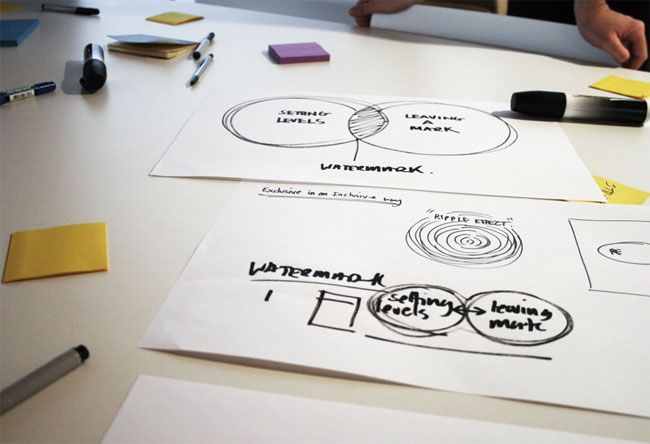 SETTING
LEVELS
LEAVING
A
MARK
WATERMARK.
Exclusive in an Inclusive way
"RIPPLE EFFECT."
WATERMARK
setting
levels
leaving
mark